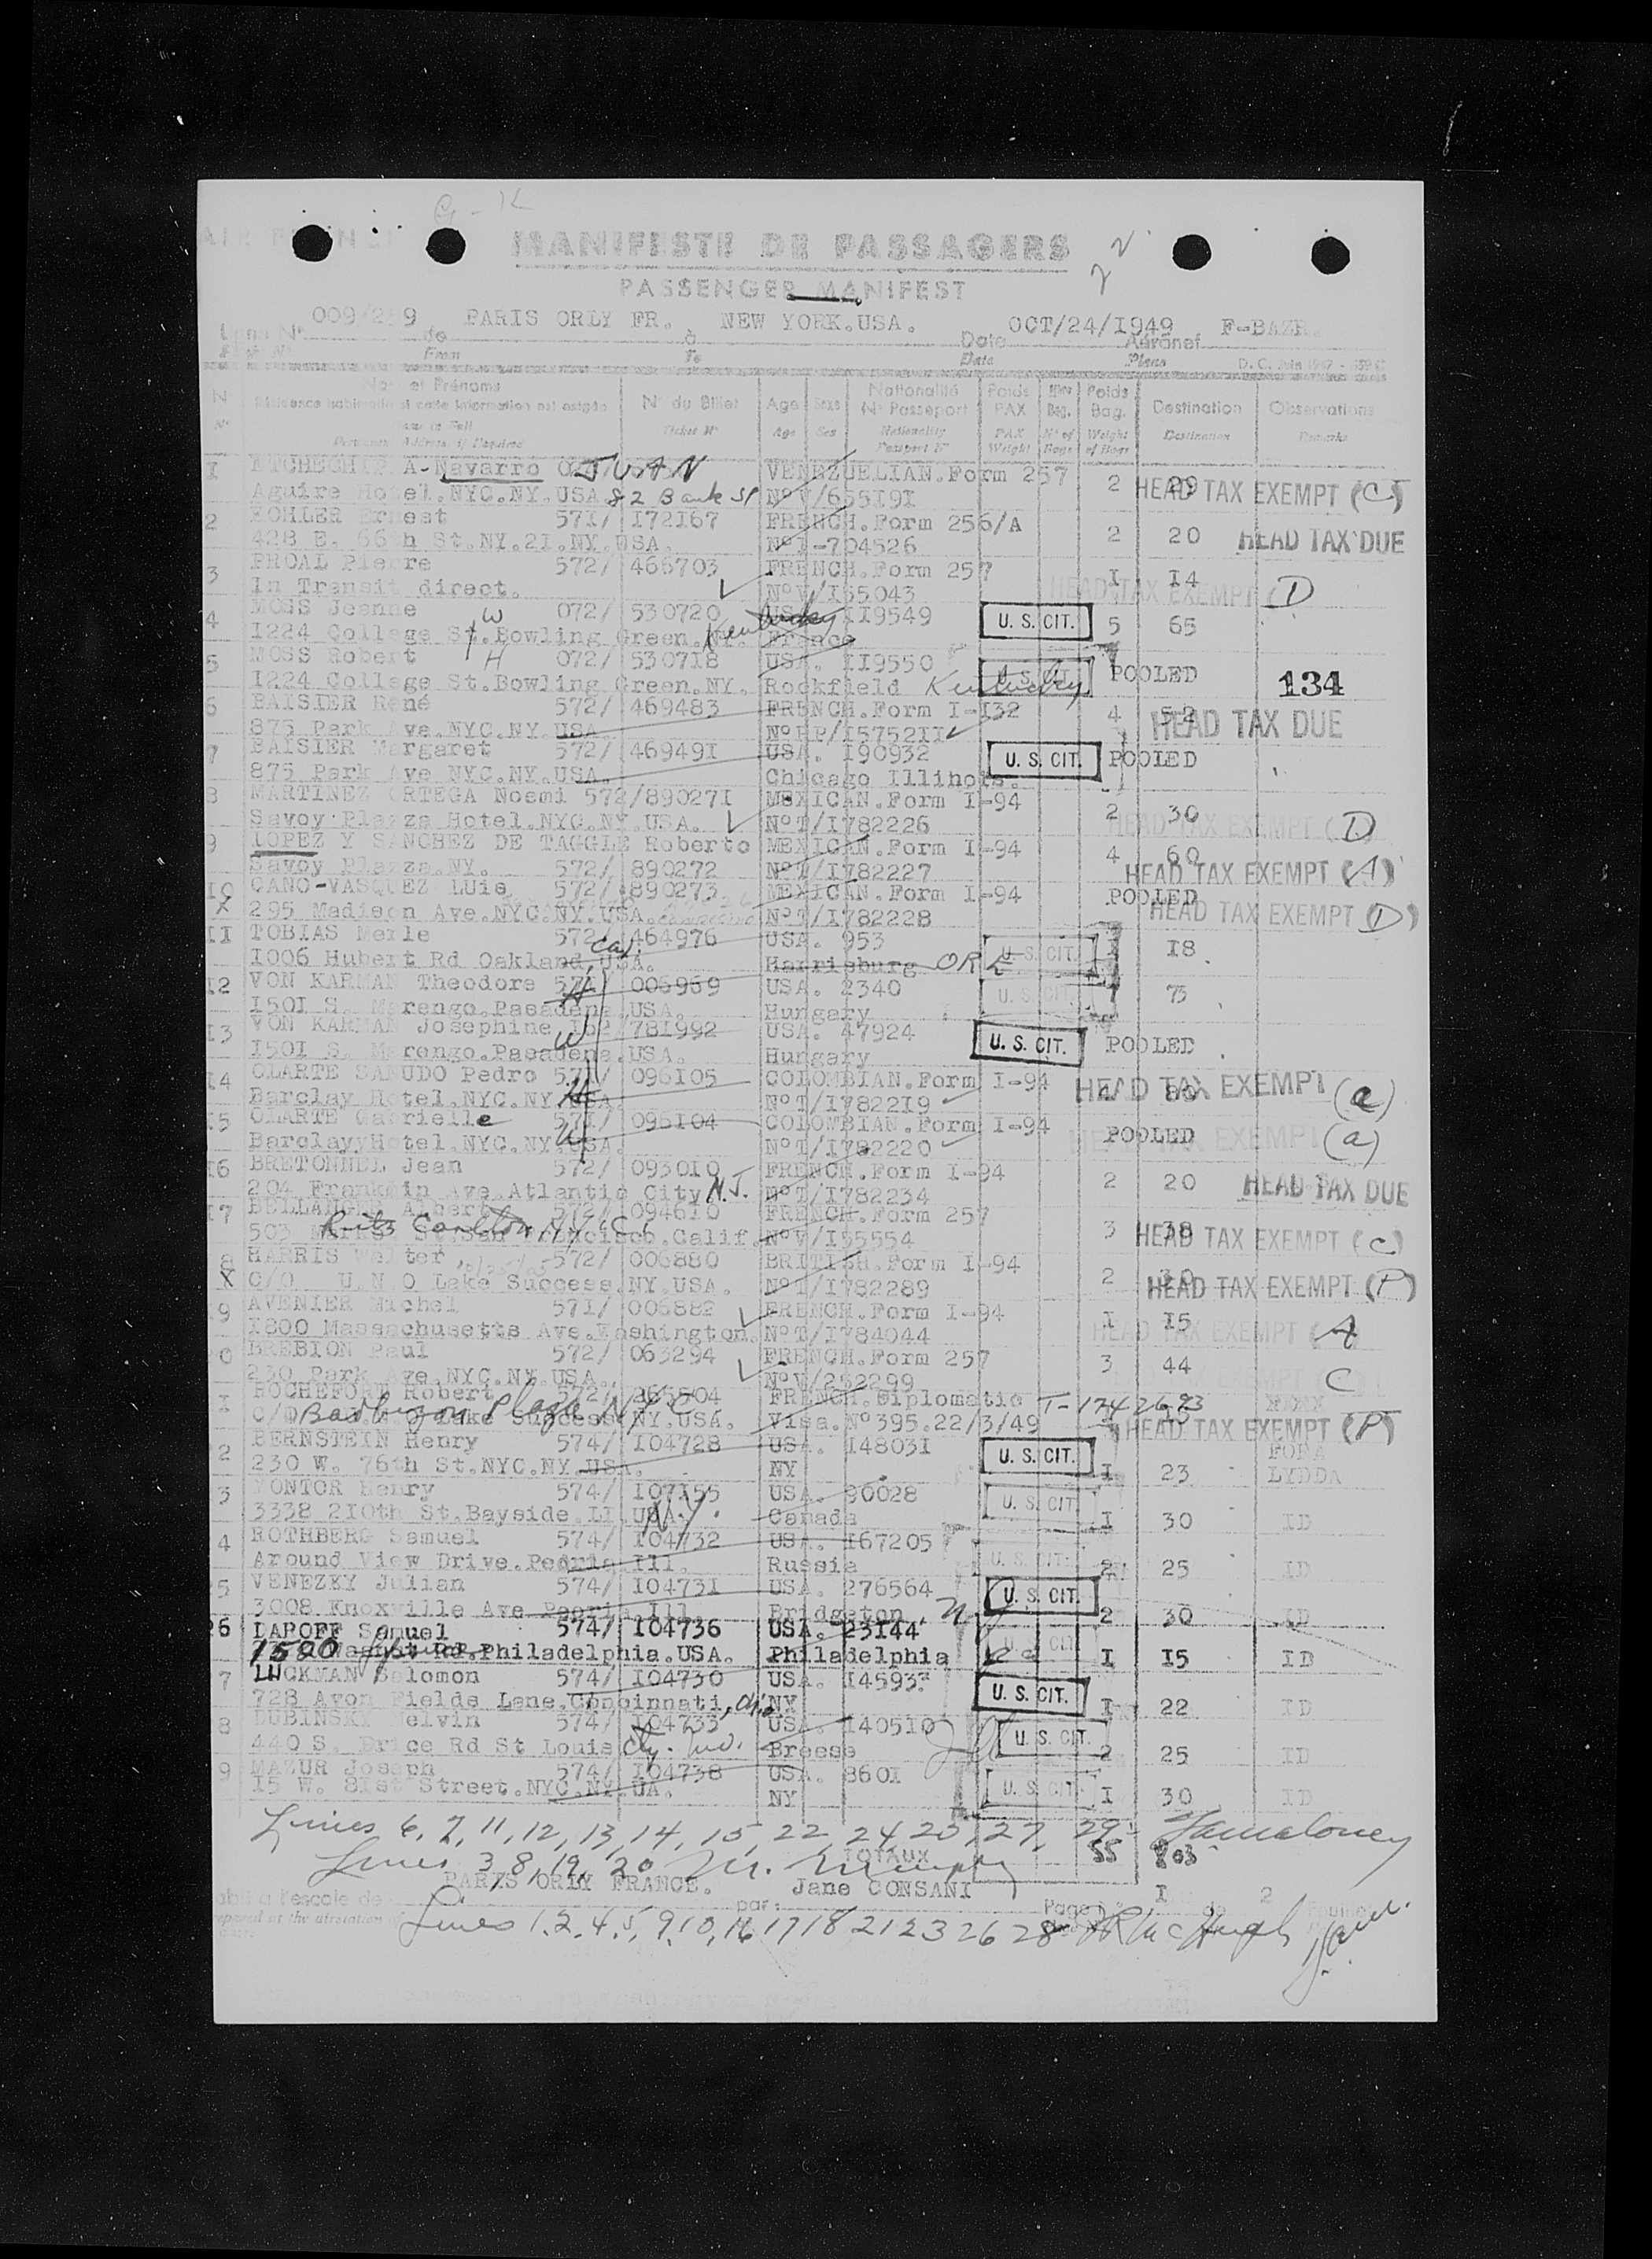 G-K
MANIFESTE DE PASSAGERS
PASSENGER MANIFEST
PARIS ORLY FR. à NEW YORK.USA. Date OCT/24/1949 Aéronef F-BAZR.
From To Date Plane
Nom et Prénoms N° du Billet Age Sexe Nationalité Poids PAX Poids Bag. Destination Observations
N° Passeport
Ticket N° Age Sex Nationality Passport N° PAX Weight N° of Bags Weight of Bags Destination Remarks
I A-Navarro JUAN VENEZUELIAN.Form 257 2 29 HEAD TAX EXEMPT (C)
Aguire Hotel.NYC.NY.USA. 82 Bank St N°V/655191
2 KOHLER Ernest 571/ 172167 FRENCH.Form 256/A 2 20 HEAD TAX DUE
428 E. 66th St.NY.21.NY.USA. N°I-704526
3 PHOAL Pierre 572/ 466703 FRENCH.Form 257 I I4 HEAD TAX EXEMPT (D)
In Transit direct. N°V/I35043
4 MOSS Jeanne W 072/ 530720 USA. II9549 U. S. CIT. 5 65
I224 College St.Bowling Green.NY. Kentucky France
5 MOSS Robert H 072/ 530718 USA. II9550 U. S. CIT. POOLED 134
I224 College St.Bowling Green.NY. Rockfield Kentucky
6 BAISIER René 572/ 469483 FRENCH.Form I-I32 4 52 HEAD TAX DUE
875 Park Ave.NYC.NY.USA. N°PP/I5752II
7 BAISIER Margaret 572/ 46949I USA. I90932 U. S. CIT. POOLED
875 Park Ave NYC.NY.USA. Chicago Illinois.
8 MARTINEZ ORTEGA Noemi 572/89027I MEXICAN.Form I-94 2 30 HEAD TAX EXEMPT (D)
Savoy Plazza Hotel.NYC.NY.USA. N°T/I782226
9 LOPEZ Y SANCHEZ DE TAGGLE Roberto MEXICAN.Form I-94 4 60 HEAD TAX EXEMPT (A)
Savoy Plazza.NY. 572/ 890272 N°T/I782227
IO CANO-VASQUEZ LUis 572/ 890273 MEXICAN.Form I-94 POOLED HEAD TAX EXEMPT (D)
X 295 Madison Ave.NYC.NY.USA. N°T/I782228
II TOBIAS Merle 572/ 464976 USA. 953 U. S. CIT. I I8
I006 Hubert Rd Oakland, Cal. USA. Harrisburg ORE
I2 VON KARMAN Theodore 574/ 006969 USA. 2340 U. S. CIT. 73
I50I S. Marengo.Pasadena.USA. Hungary
I3 VON KARMAN Josephine 78I992 USA. 47924 U. S. CIT. POOLED
I50I S. Marengo.Pasadena.USA. Hungary
I4 OLARTE SANUDO Pedro 571/ 096I05 COLOMBIAN.Form I-94 HEAD TAX EXEMPT (a)
Barclay Hotel.NYC.NY.USA. N°T/I7822I9
I5 OLARTE Gabrielle 571/ 096I04 COLOMBIAN.Form I-94 POOLED HEAD TAX EXEMPT (a)
BarclayyHotel.NYC.NY.USA. N°T/I782220
I6 BRETONNEL Jean 572/ 0930I0 FRENCH.Form I-94 2 20 HEAD TAX DUE
204 Franklin Ave.Atlantic City N.J. N°T/I782234
I7 BELLANGER Albert 572/ 0946I0 FRENCH.Form 257 3 38 HEAD TAX EXEMPT (C)
503 Market St.San Francisco.Calif. Ritz Carlton N.Y.C. N°V/I55554
8 HARRIS Walter 572/ 006880 BRITISH.Form I-94 2 30 HEAD TAX EXEMPT (P)
X C/O U.N.O Lake Success.NY.USA. N°T/I782289
9 AVENIER Michel 571/ 006882 FRENCH.Form I-94 I I5 HEAD TAX EXEMPT (A)
I800 Massachusetts Ave.Washington. N°T/I784044
0 BREBION Paul 572/ 063294 FRENCH.Form 257 3 44 C
230 Park Ave.NYC.NY.USA. N°V/252299
I ROCHEFORT Robert 572/ FRENCH.Diplomatic T-1742693
C/O Lake Success NY.USA. Barbizon Plaza NYC Visa.N°395.22/3/49 HEAD TAX EXEMPT (P)
2 BERNSTEIN Henry 574/ I04728 USA. I4803I U. S. CIT. I 23 LYDDA
230 W. 76th St.NYC.NY.USA. NY
3 Henry 574/ I07I55 USA. 90028 U. S. CIT. I 30 ID
3338 2I0th St.Bayside.LI.USA. N.Y. Canada
4 ROTHBERG Samuel 574/ I04732 USA. I67205 U. S. CIT. 2 25 ID
Around View Drive.Peoria Ill. Russia
5 VENEZKY Julian 574/ I0473I USA. 276564 U. S. CIT. 2 30 ID
3008 Knoxville Ave Peoria Ill. Bridgeton, N.J
26 LAPOFF Samuel 574/ I04736 USA. 23I44 U. S. CIT. I I5 ID
1530 Rd.Philadelphia.USA. Philadelphia Pa
7 LUCKMAN Solomon 574/ I04730 USA. I4593 U. S. CIT. I 22 ID
728 Avon Fields Lane.Cincinnati, Ohio NY
8 DUBINSKY Melvin 574/ I04733 USA. I405I0 U. S. CIT. 2 25 ID
440 S. Brice Rd St Louis Cty. Mo. Breese Ill
9 MAZUR Joseph 574/ I04738 USA. 860I U. S. CIT. I 30 ID
I5 W. 8Ist Street.NYC.NY.UA. NY
Lines 6, 7, 11, 12, 13, 14, 15, 22, 24, 25, 27, 29
TOTAUX 55 803
Lines 3, 8, 19, 20
PARIS ORLY FRANCE. par: Jane CONSANI Page I de 2
Lines 1. 2. 4. 5, 9. 10, 16 17 18 21 23 26 28